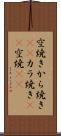 空焼きから焼き
カラ焼き
空焼